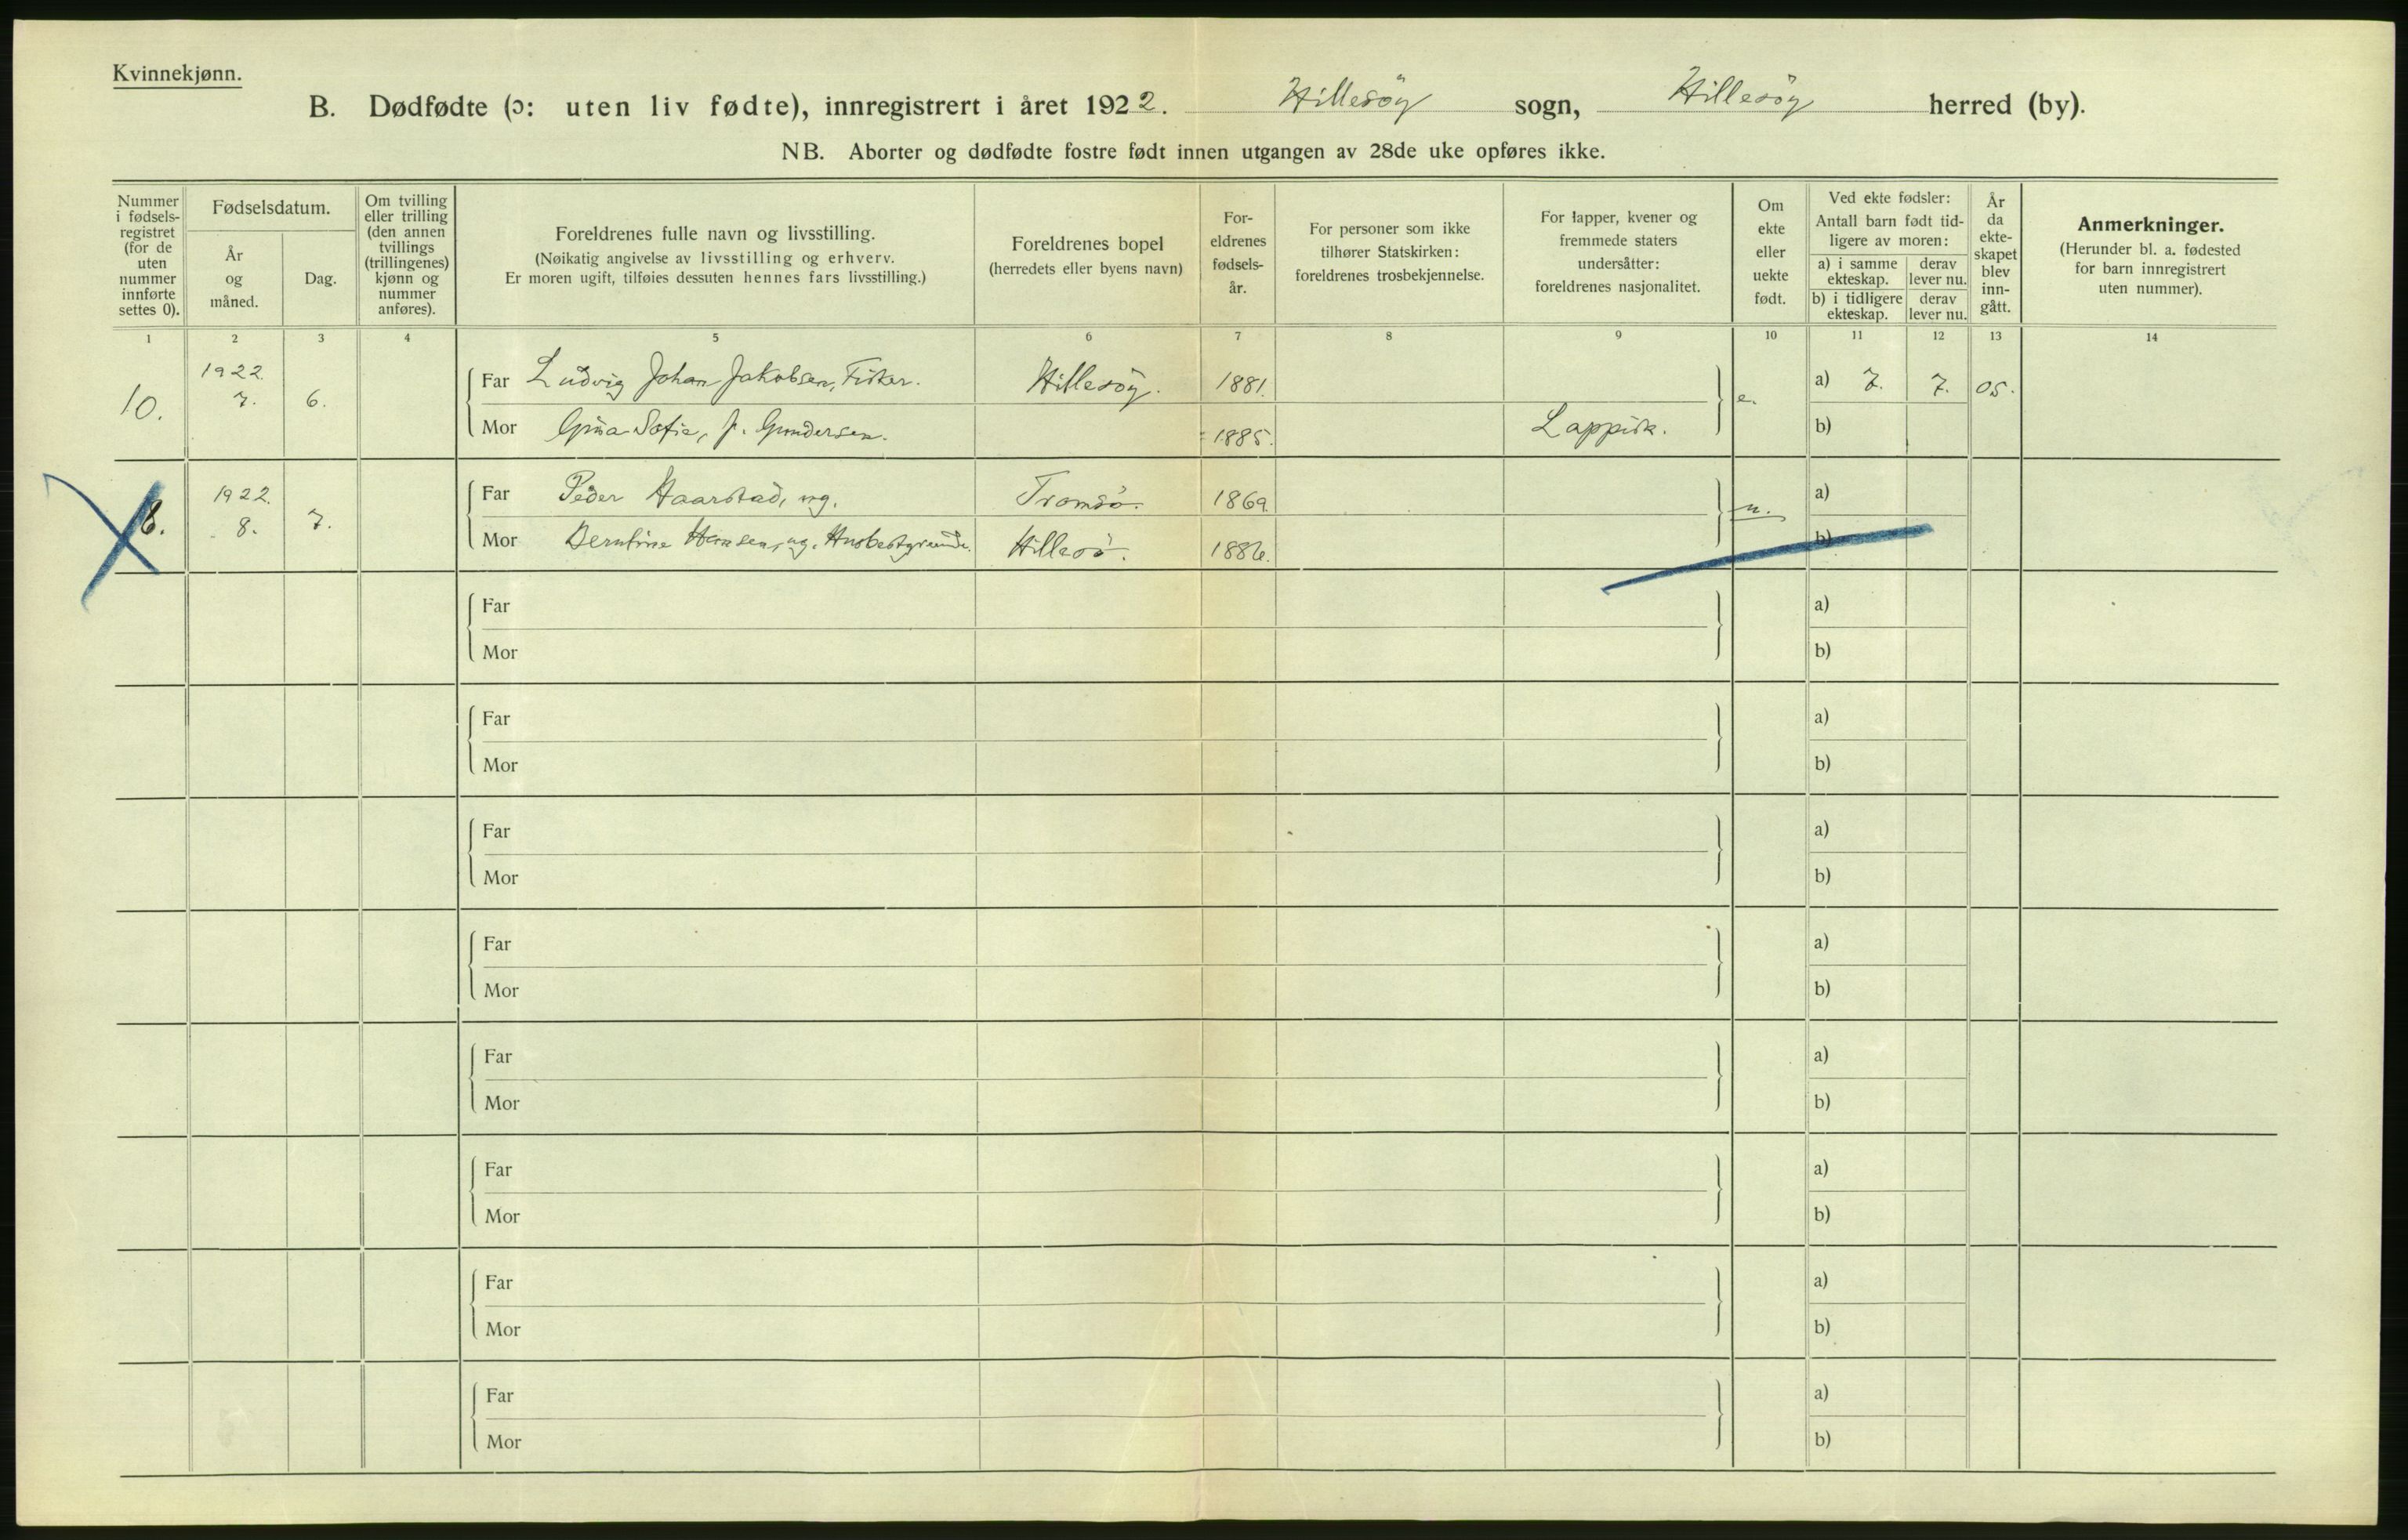 Kvinnekjønn.
B. Dødfødte (ɔ: uten liv fødte), innregistrert i året 1922. Hillesöy sogn, Hillesöy herred (by).
NB. Aborter og dødfødte fostre født innen utgangen av 28de uke opføres ikke.
Nummer i fødsels-registret (for de uten nummer innførte settes 0).
Fødselsdatum.
År og måned.
Dag.
Om tvilling eller trilling (den annen tvillings (trillingenes) kjønn og nummer anføres).
Foreldrenes fulle navn og livsstilling.
(Nøikatig angivelse av livsstilling og erhverv.
Er moren ugift, tilføies dessuten hennes fars livsstilling.)
Foreldrenes bopel
(herredets eller byens navn)
For-eldrenes fødsels-år.
For personer som ikke tilhører Statskirken: foreldrenes trosbekjennelse.
For lapper, kvener og fremmede staters undersåtter: foreldrenes nasjonalitet.
Om ekte eller uekte født.
Ved ekte fødsler:
Antall barn født tid-ligere av moren:
a) i samme ekteskap.
derav lever nu.
b) i tidligere ekteskap.
derav lever nu.
År da ekte-skapet blev inn-gått.
Anmerkninger.
(Herunder bl. a. fødested for barn innregistrert uten nummer).
1 2 3 4 5 6 7 8 9 10 11 12 13 14
10. 1922. 7. 6.
Far Ludvig Johan Jakobsen, Fisker. Hillesöy. 1881. e. a) 7. 7. 05.
Mor Gina Sofie, f. Gundersen. 1885. Lappisk. b)
6. 1922. 8. 7.
Far Peder Haarstad, ug. Tromsö. 1869. u. a)
Mor Berntine Hansen, ug. Husbestyrerinde. Hillesö. 1886. b)
Far a)
Mor b)
Far a)
Mor b)
Far a)
Mor b)
Far a)
Mor b)
Far a)
Mor b)
Far a)
Mor b)
Far a)
Mor b)
Far a)
Mor b)